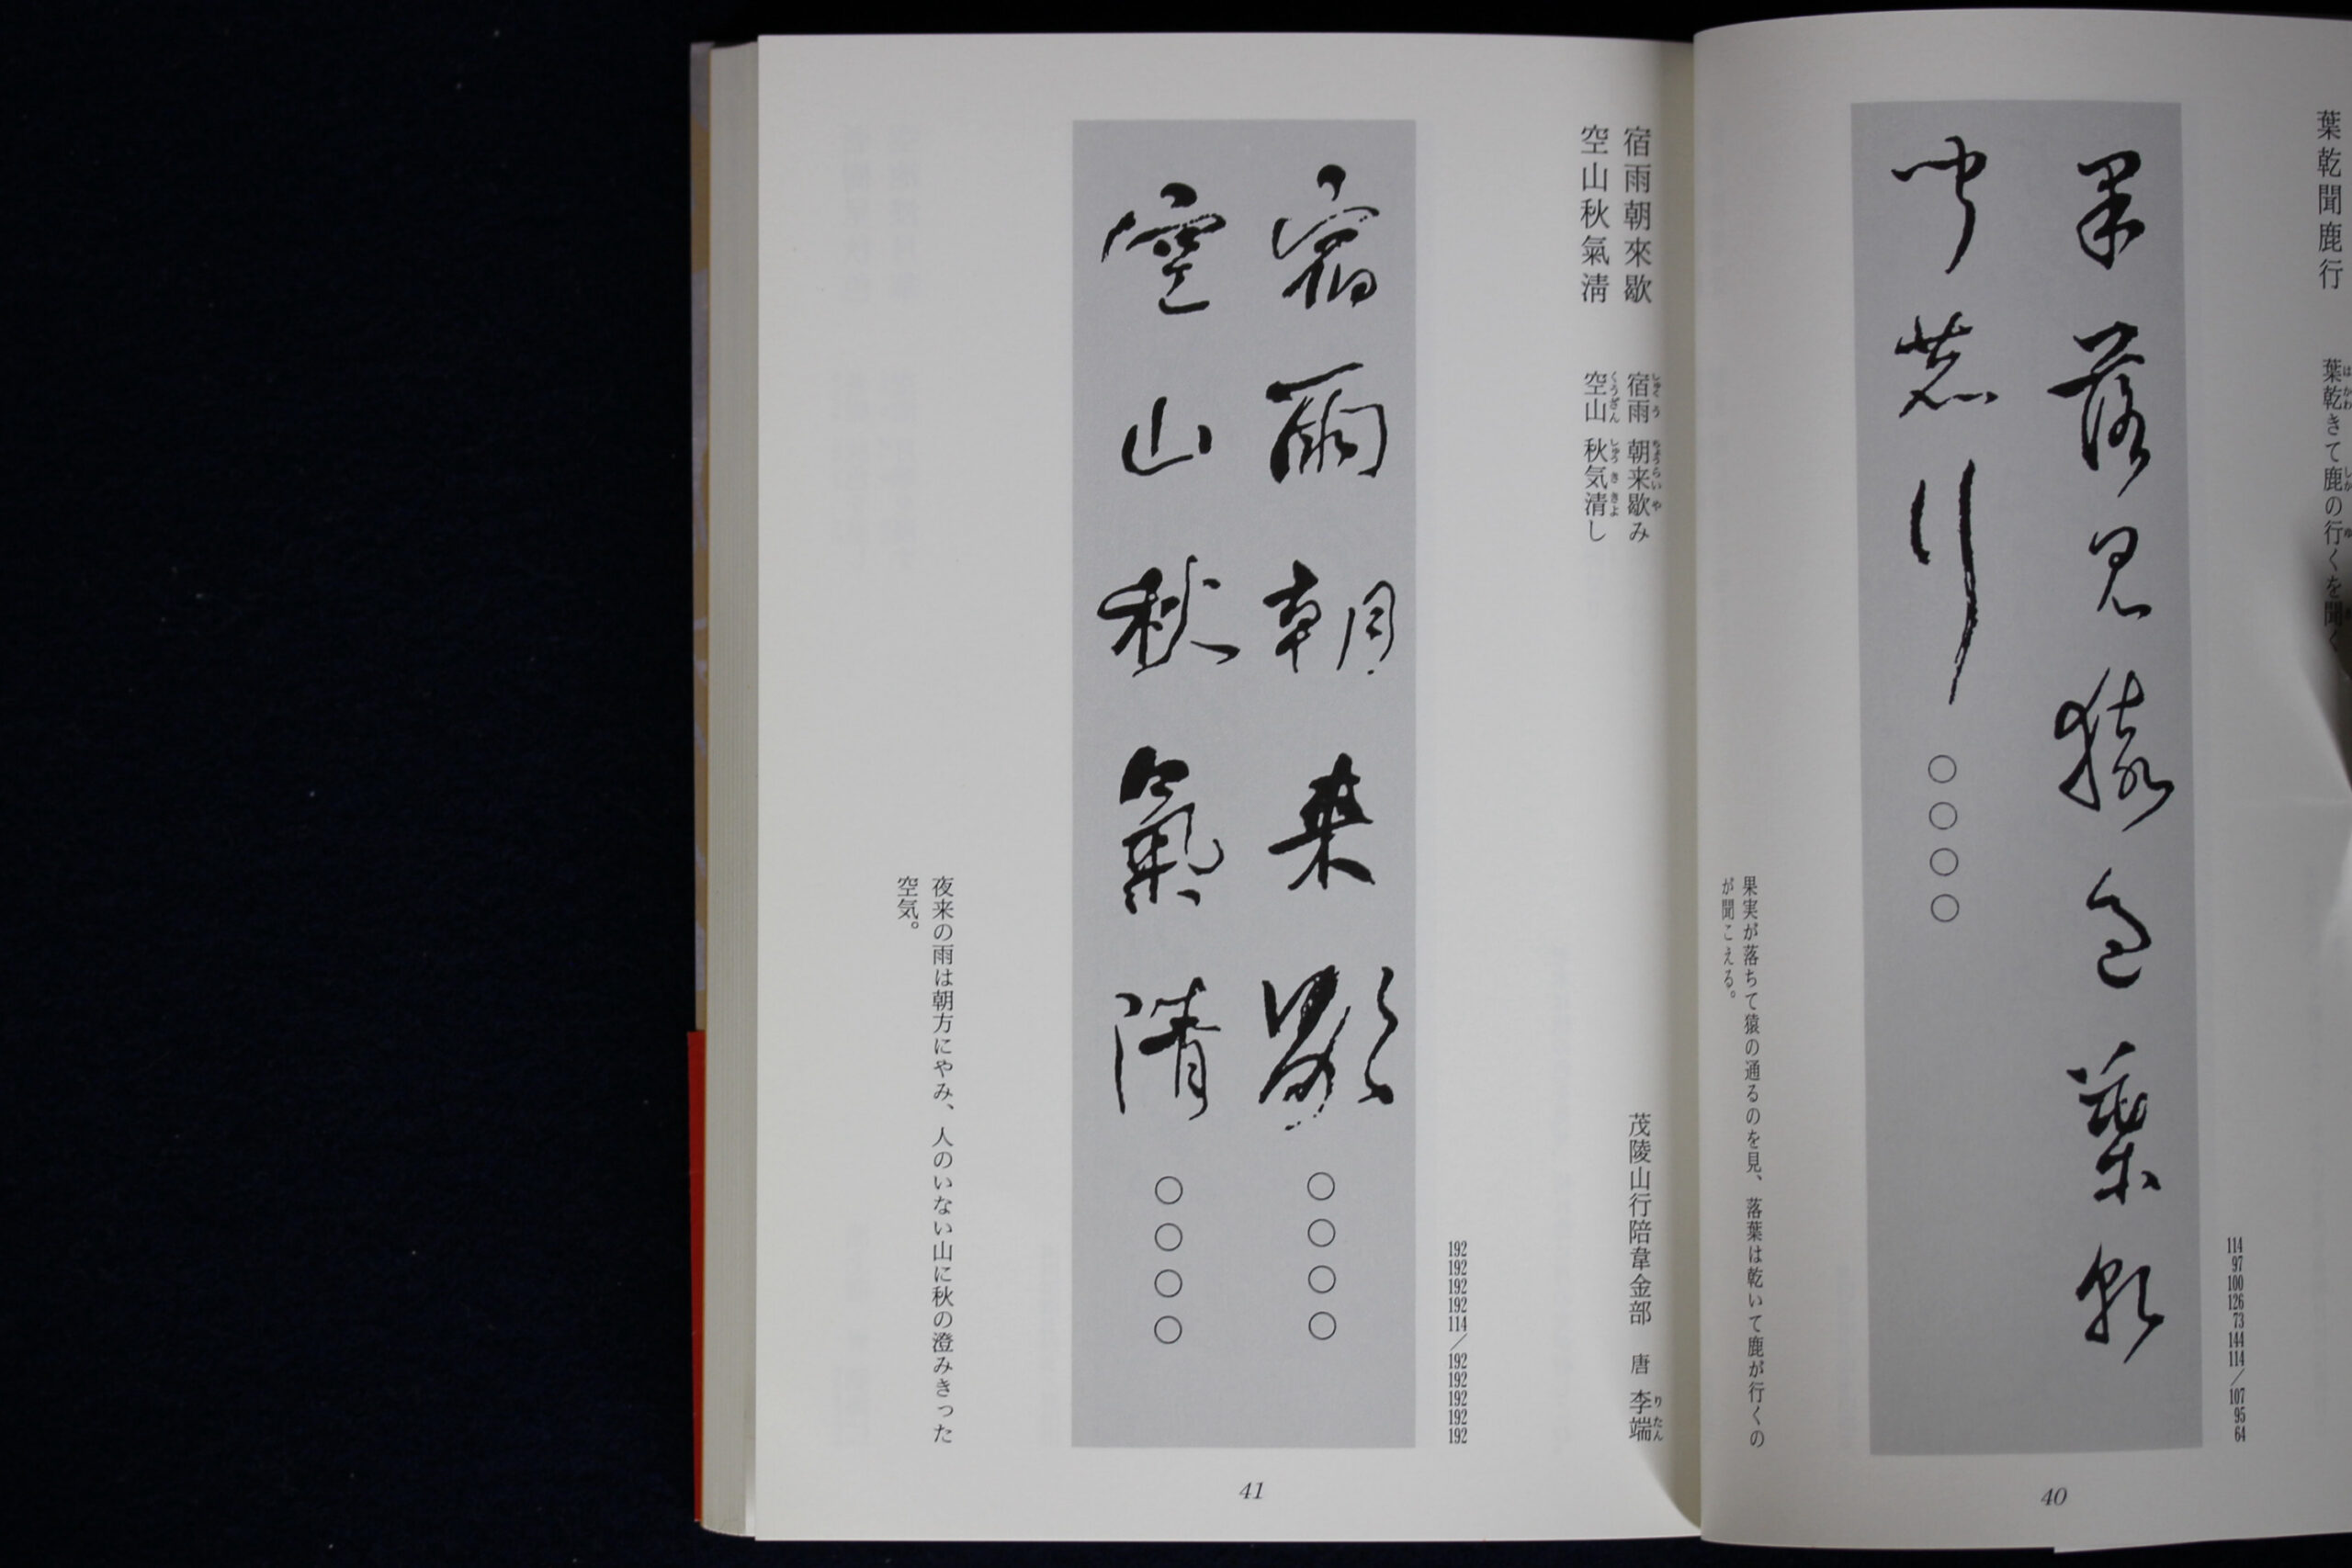 葉乾聞鹿行
葉乾きて鹿の行くを聞く
114 97 100 126 73 144 114／107 95 64
果落見猿過葉乾
聞鹿行○○○○
果実が落ちて猿の通るのを見、落葉は乾いて鹿が行くの
が聞こえる。
40
宿雨朝來歇
空山秋氣淸
宿雨 朝来歇み
空山 秋気清し
茂陵山行陪韋金部 唐 李端
192 192 192 192 114／192 192 192 192 192
宿雨朝来歇○○○○
空山秋氣清○○○○
夜来の雨は朝方にやみ、人のいない山に秋の澄みきった
空気。
41